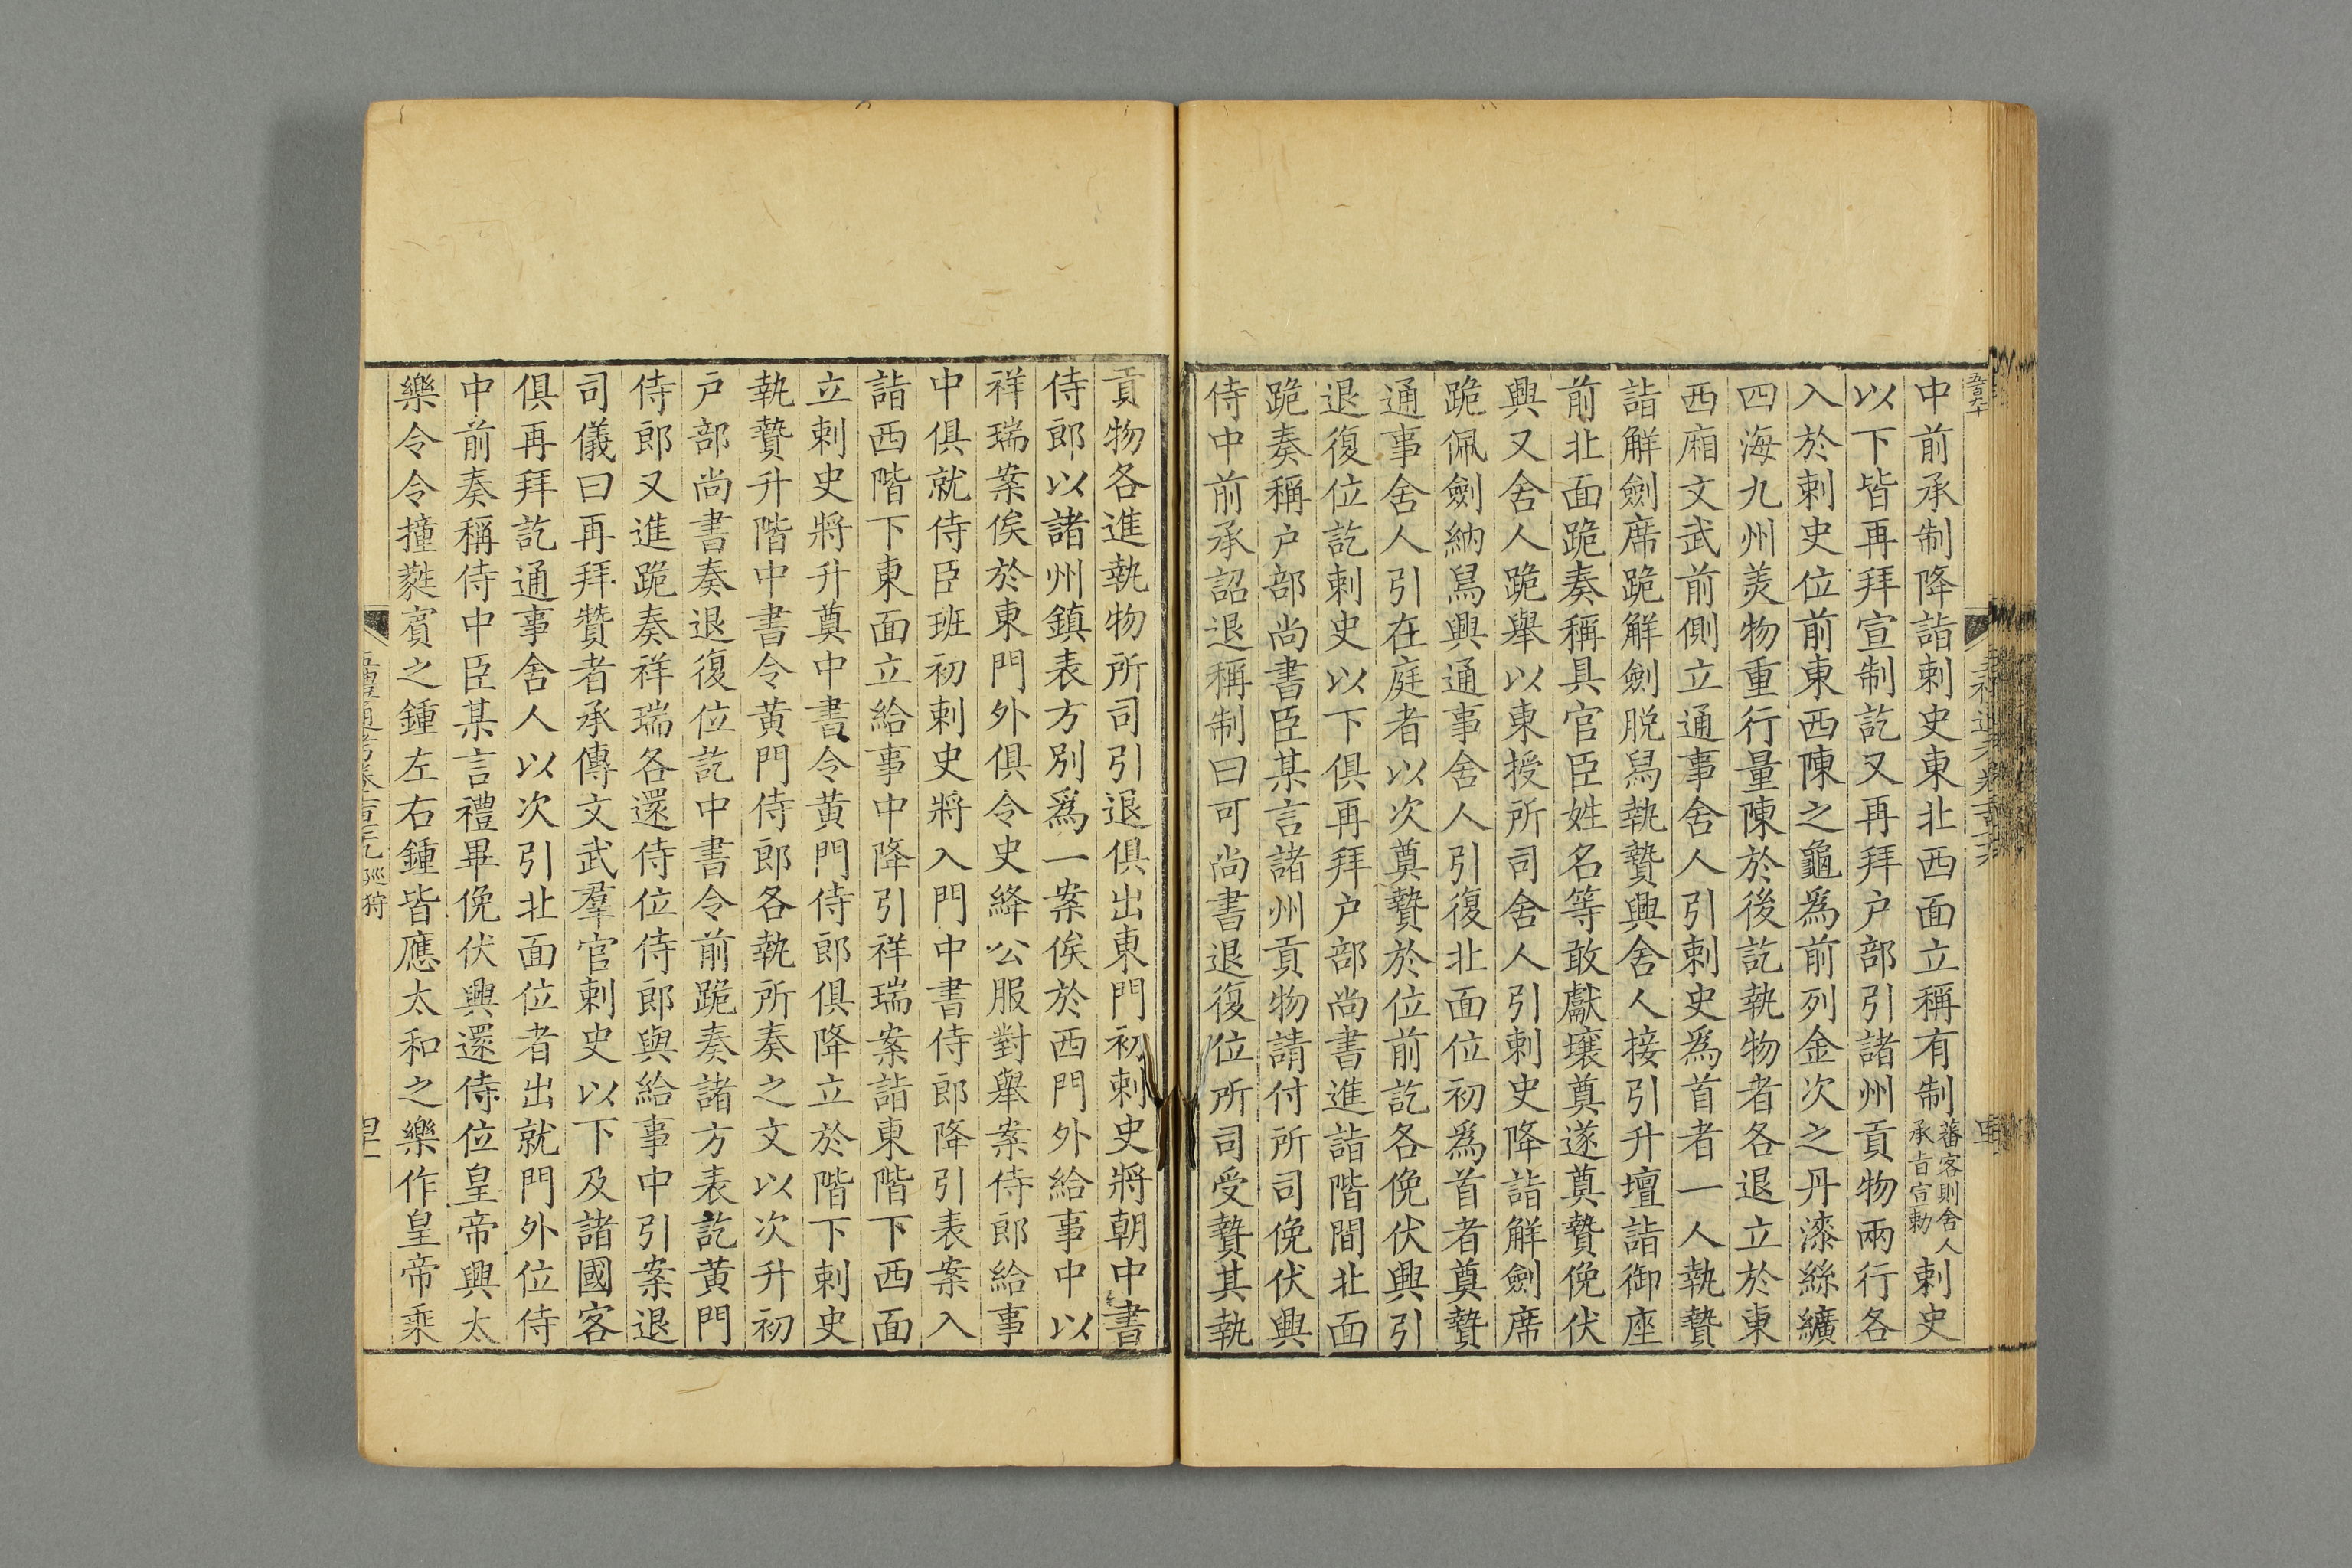 中前承制降詣刺史東北西面立稱有制蕃客則舍人承旨宣勅刺史
以下皆再拜宣制訖又再拜户部引諸州貢物兩行各
入於刺史位前東西陳之龜爲前列金次之丹漆絲纊
四海九州美物重行量陳於後訖執物者各退立於東
西廂文武前側立通事舍人引刺史爲首者一人執贄
詣解劍席跪解劍脱舄執贄興舍人接引升壇詣御座
前北面跪奏稱具官臣姓名等敢獻壤奠遂奠贄俛伏
興又舍人跪舉以東授所司舍人引刺史降詣解劍席
跪佩劍納舄興通事舍人引復北面位初爲首者奠贄
通事舍人引在庭者以次奠贄於位前訖各俛伏興引
退復位訖刺史以下俱再拜户部尚書進詣階間北面
跪奏稱户部尚書臣某言諸州貢物請付所司俛伏興
侍中前承詔退稱制曰可尚書退復位所司受贄其執
貢物各進執物所司引退俱出東門初刺史將朝中書
侍郎以諸州鎮表方別爲一案俟於西門外給事中以
祥瑞案俟於東門外俱令史絳公服對舉案侍郎給事
中俱就侍臣班初刺史將入門中書侍郎降引表案入
詣西階下東面立給事中降引祥瑞案詣東階下西面
立刺史將升奠中書令黄門侍郎俱降立於階下刺史
執贄升階中書令黄門侍郎各執所奏之文以次升初
户部尚書奏退復位訖中書令前跪奏諸方表訖黄門
侍郎又進跪奏祥瑞各還侍位侍郎與給事中引案退
司儀曰再拜贊者承傳文武羣官刺史以下及諸國客
俱再拜訖通事舍人以次引北面位者出就門外位侍
中前奏稱侍中臣某言禮畢俛伏興還侍位皇帝興太
樂令令撞蕤賓之鍾左右鍾皆應太和之樂作皇帝乘
巡狩